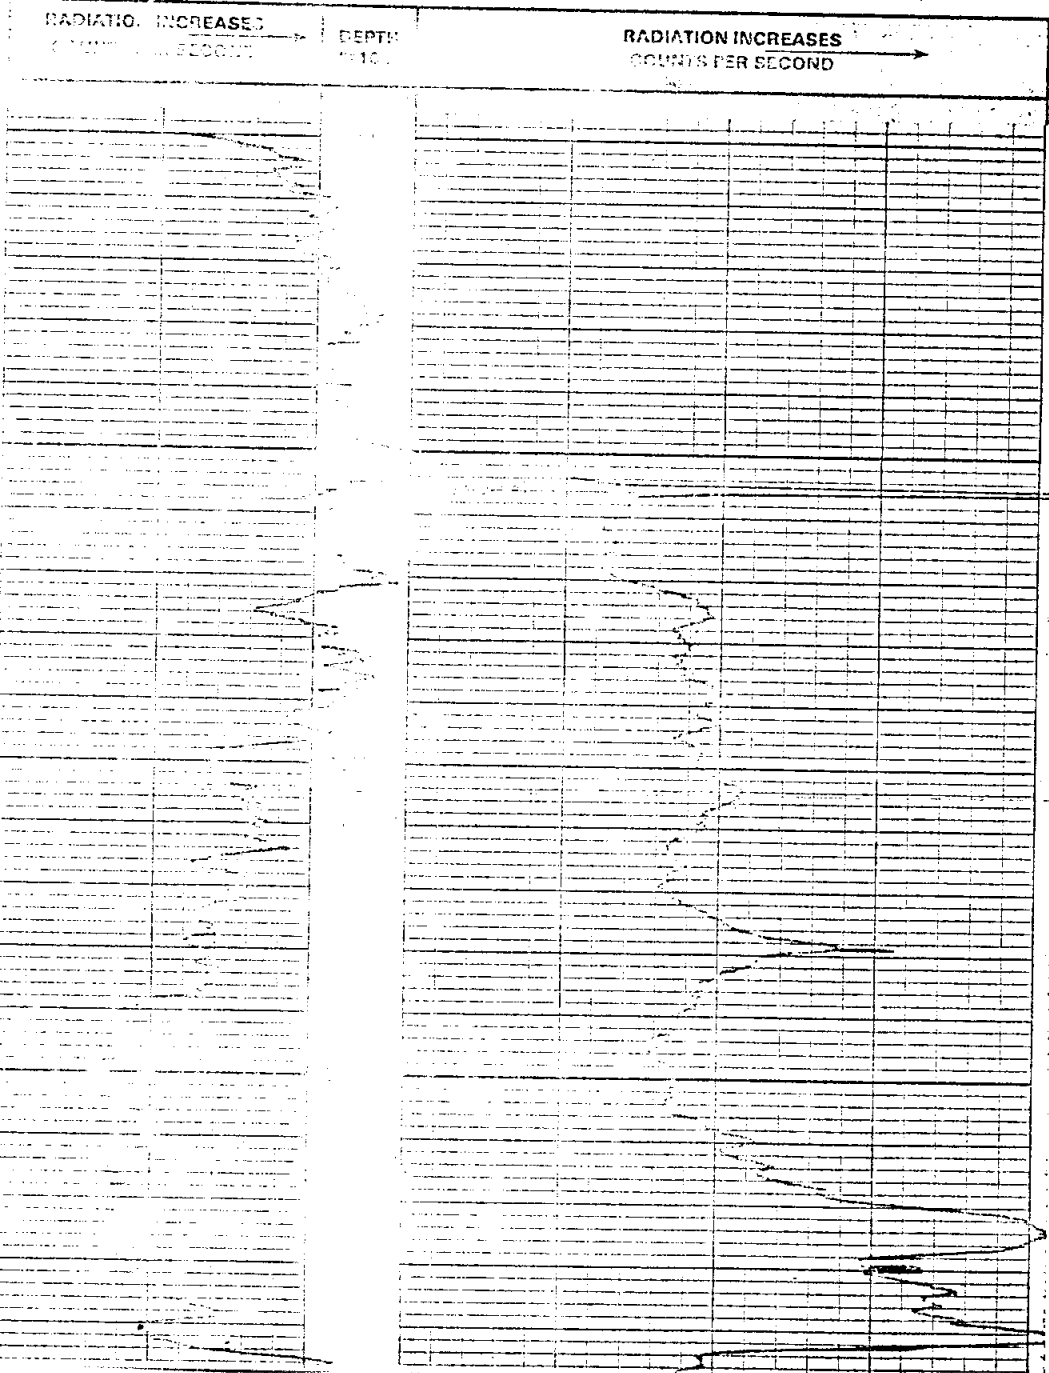 RADIATION INCREASES
DEPTH
RADIATION INCREASES
COUNTS PER SECOND